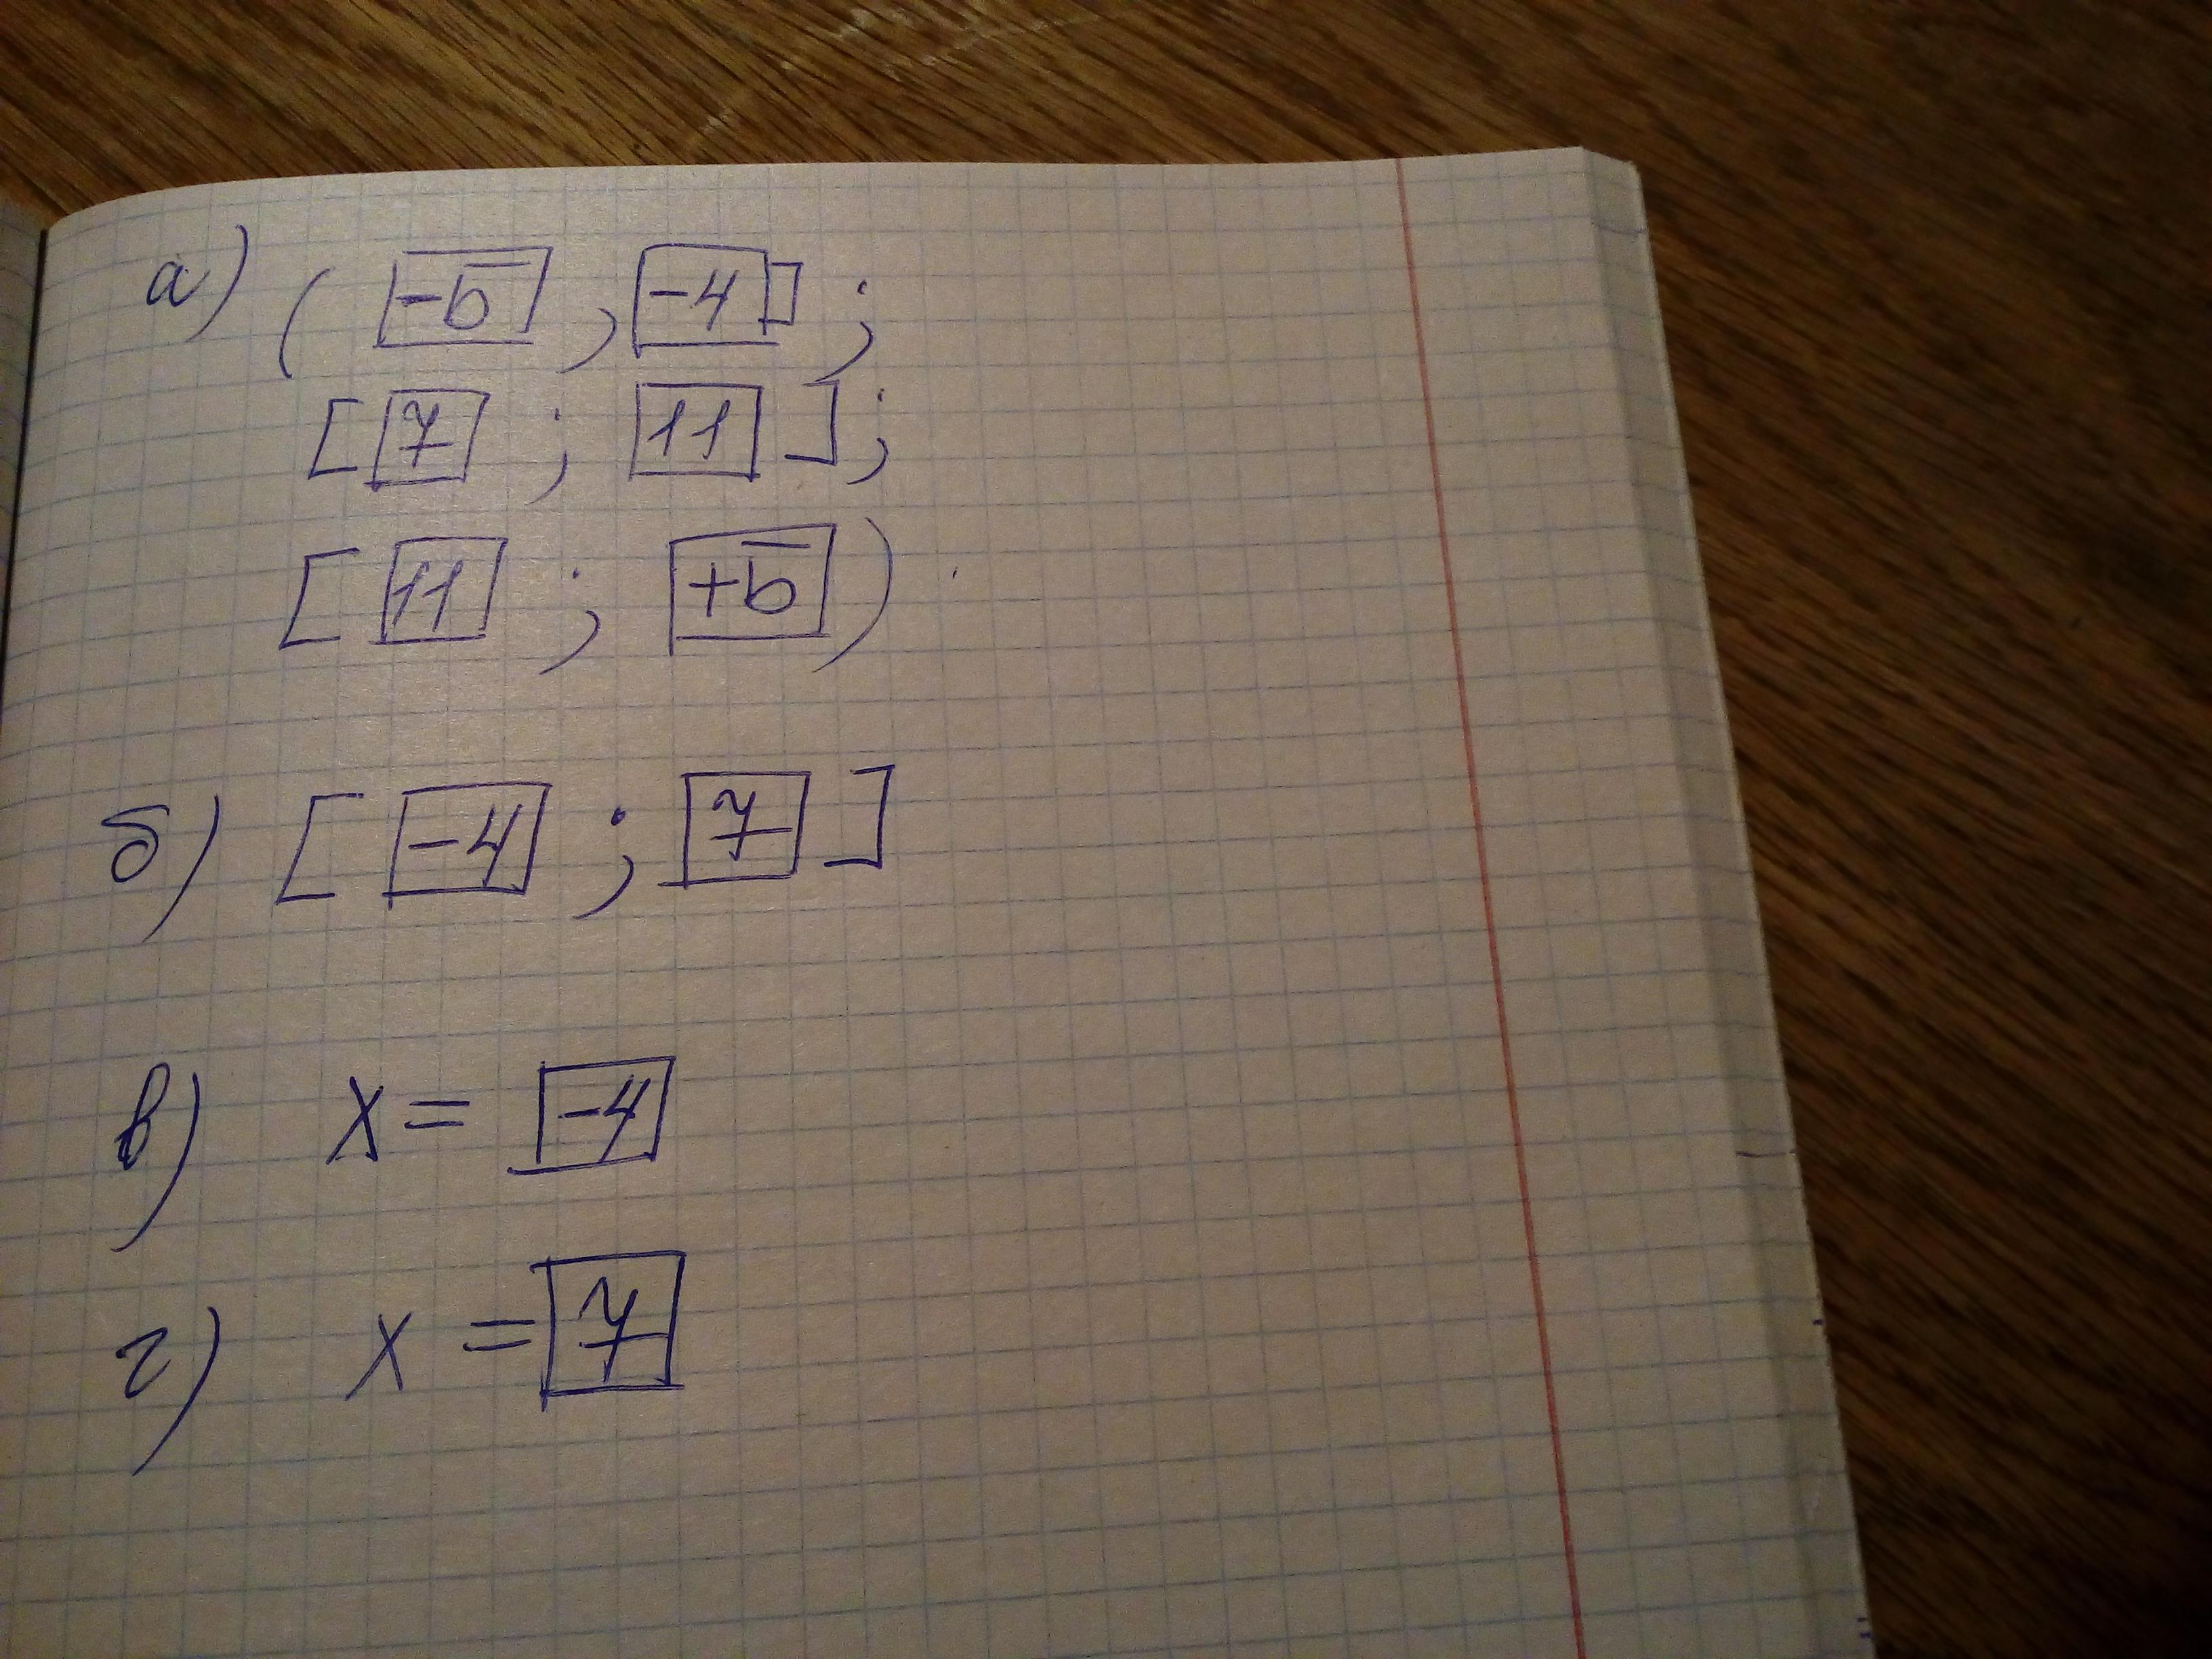 а) ( -Б ; -4 ] ;
[ 7 ; 11 ] ;
[ 11 ; +Б ) .
б) [ -4 ; 7 ]
в) x = -4
г) x = 7